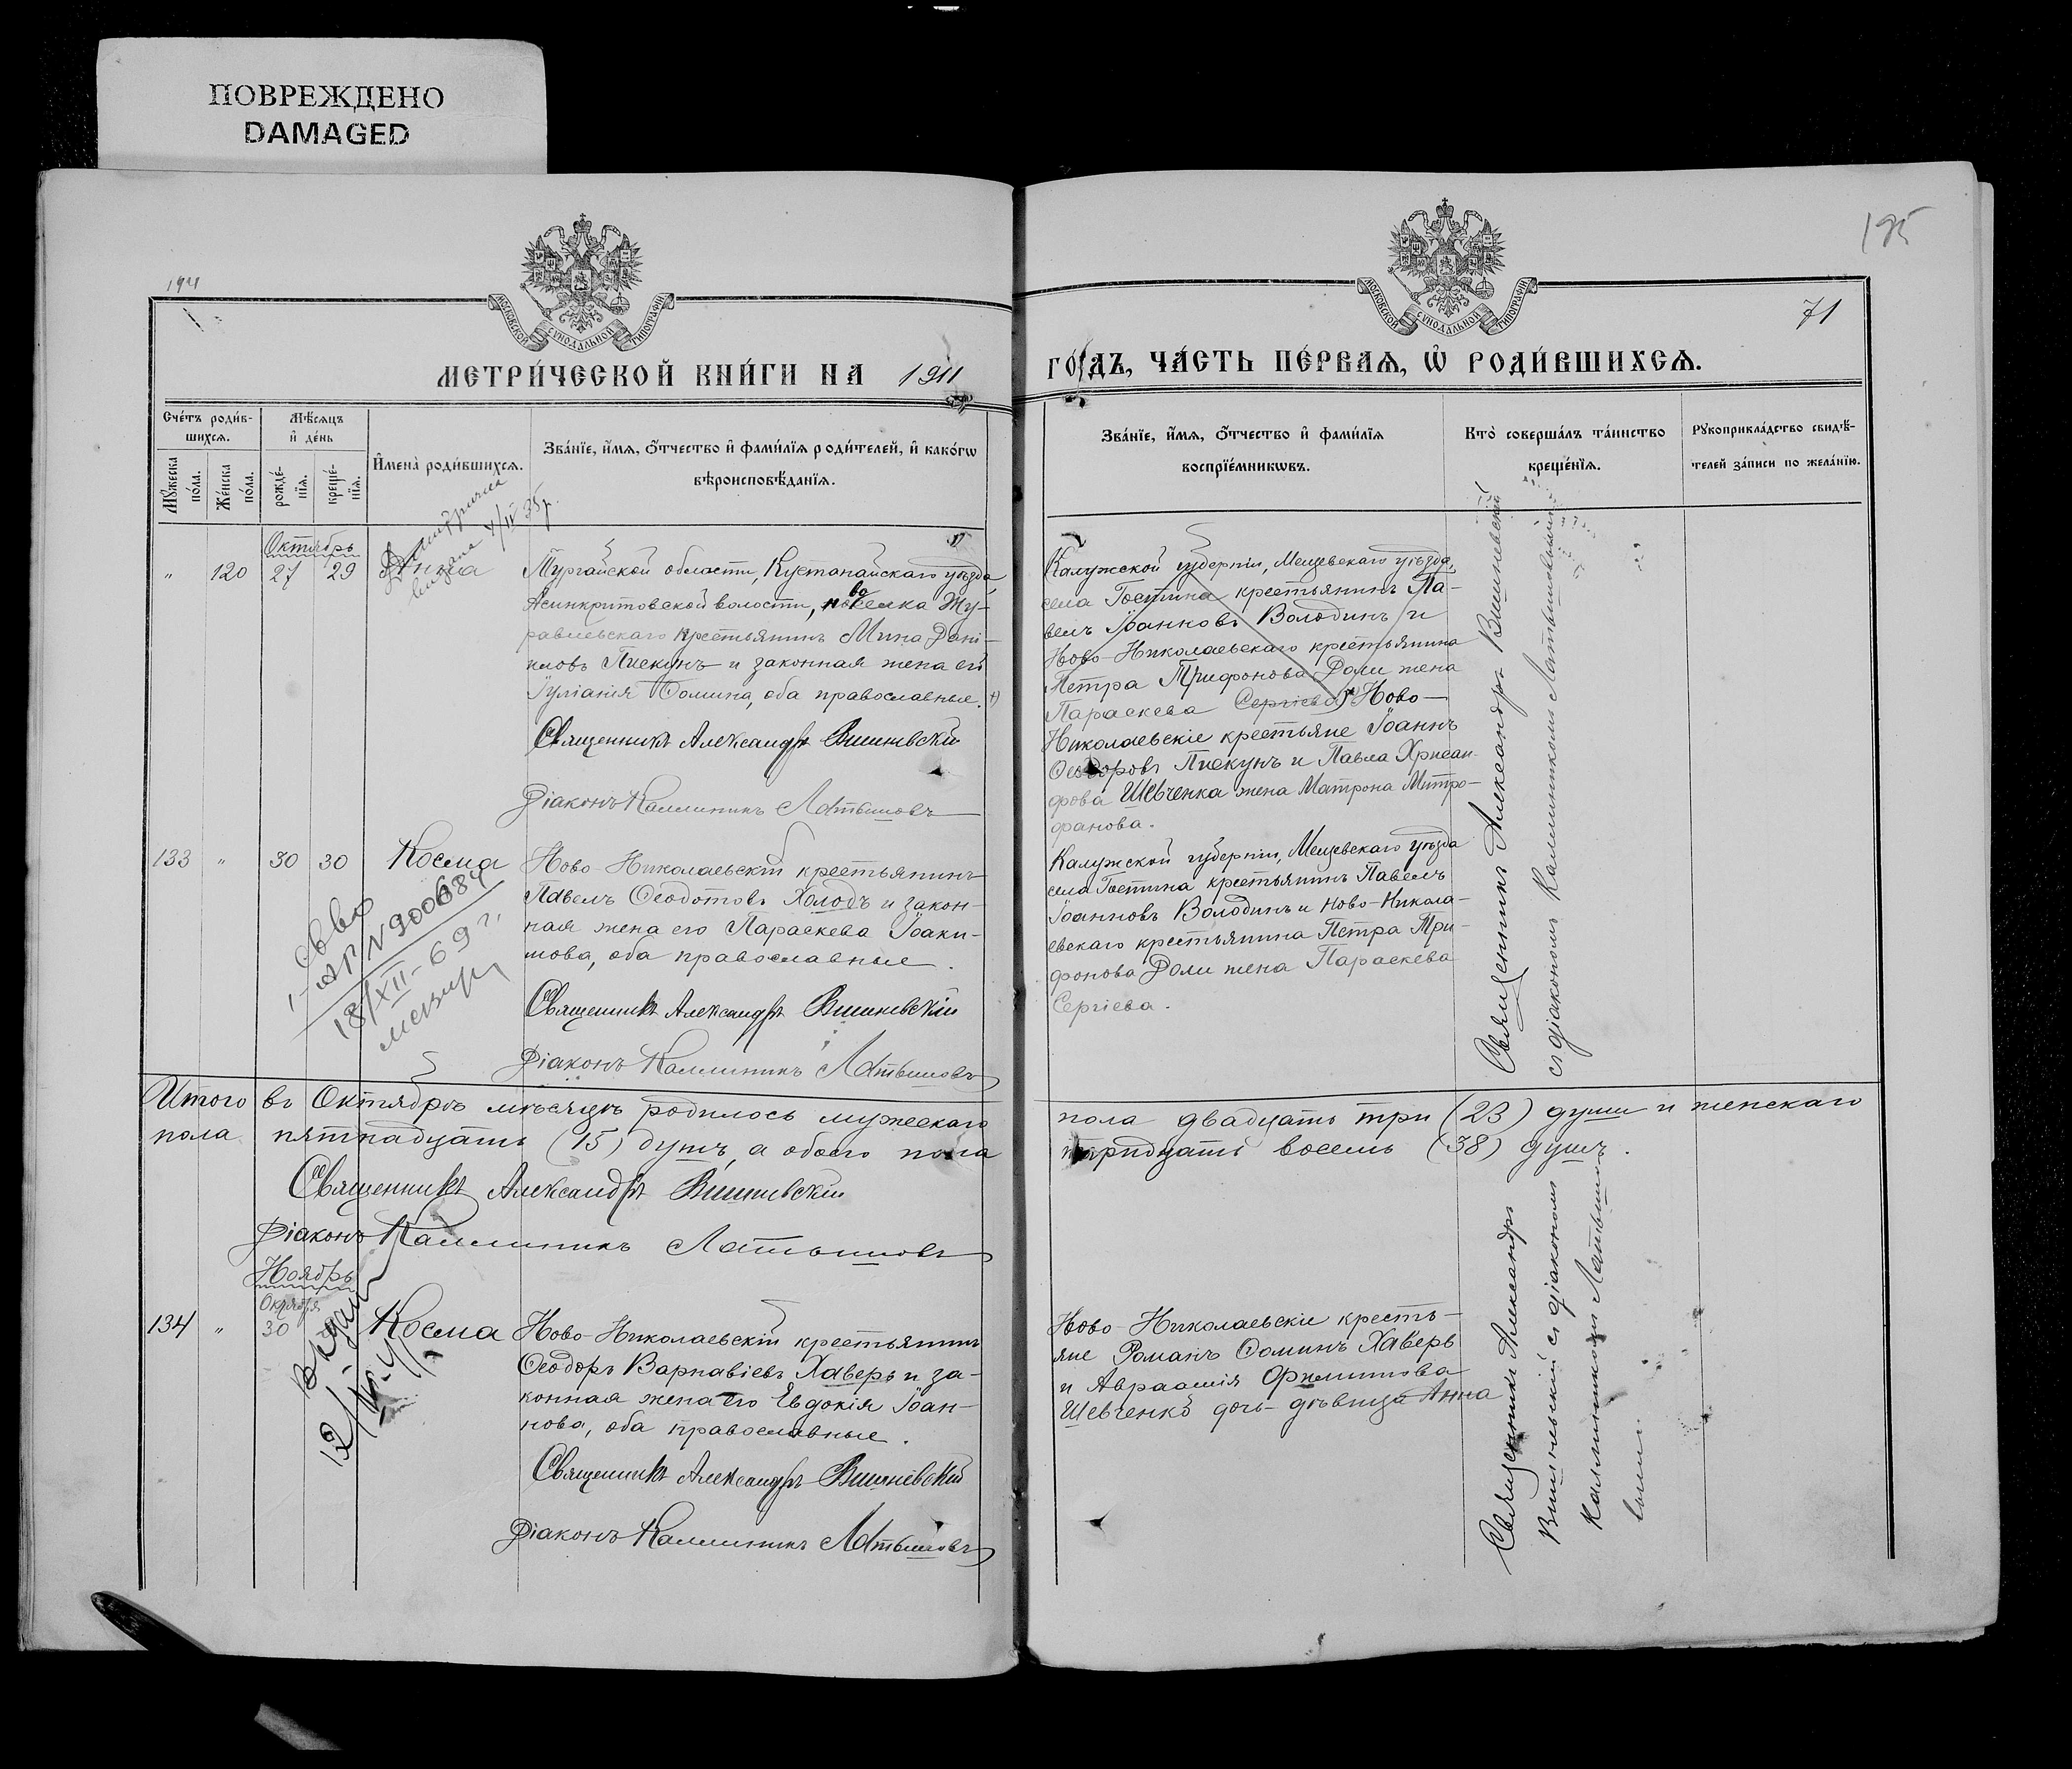 ПОВРЕЖДЕНО
DAMAGED
194
195
71
МОСКОВСКОЙ СУНОДАЛЬНОЙ ТИПОГРАФІИ
МОСКОВСКОЙ СУНОДАЛЬНОЙ ТИПОГРАФІИ
МЕТРИ́ЧЕСКОЙ КНИ́ГИ НА 1911
ГО́ДЪ, ЧА́СТЬ ПЕ́РВАѦ, Ѡ҆ РОДИ́ВШИХСѦ.
Сче́тъ роди́в-
шихсѧ.
Мꙋжеска по́ла.
Же́нска по́ла.
Мѣ́сѧцъ
и҆ де́нь
рожде́-
нїѧ.
креще́-
нїѧ.
И҆мена̀ роди́вшихсѧ.
Зва́нїе, и҆́мѧ, ѻ҆́тчество и҆ фами́лїѧ роди́телей, и҆ како́гѡ
вѣроисповѣ́данїѧ.
Зва́нїе, и҆́мѧ, ѻ҆́тчество и҆ фами́лїѧ
воспрїе́мникѡвъ.
Кто̀ соверша́лъ та́инство
креще́нїѧ.
Рꙋкоприкла́дство свидѣ́-
телей за́писи по жела́нїю.
Октябрь
„ 120 27 29 Анна
4/IV 35 г.
Тургайской области, Кустанайскаго уѣзда
Асинкритовской волости, поселка Жу-
равлевскаго крестьянинъ Мина Дани-
иловъ Пискунъ и законная жена его
Іуліанія Ѳомина, оба православные.
Священникъ Александръ Вишневскій
Діаконъ Каллиникъ Латышовъ
Калужской губерніи, Мещевскаго уѣзда,
села Гостина крестьянинъ Па-
велъ Іоанновъ Володинъ и
Ново-Николаевскаго крестьянина
Петра Трифонова Доли жена
Параскева Сергіева Ново-
Николаевскіе крестьяне Іоаннъ
Ѳеодоровъ Пискунъ и Павла Хрисан-
фова Шевченка жена Матрона Митро-
фанова.
133 „ 30 30 Косма
Ново-Николаевскій крестьянинъ
Павелъ Ѳеодотовъ Холодъ и закон-
ная жена его Параскева Іоаки-
мова, оба православные.
Священникъ Александръ Вишневскій
Діаконъ Каллиникъ Латышовъ
18/XII-69 г.
Калужской губерніи, Мещевскаго уѣзда
села Гостина крестьянинъ Павелъ
Іоанновъ Володинъ и Ново-Никола-
евскаго крестьянина Петра Три-
фонова Доли жена Параскева
Сергіева.
Священникъ Александръ Вишневскій
съ діакономъ Каллиникомъ Латышовымъ
Итого въ Октябрѣ мѣсяцѣ родилось мужескаго
пола двадцать три (23) души и женскаго
пола пятнадцать (15) душъ, а обоего пола
тридцать восемь (38) душъ.
Священникъ Александръ Вишневскій
Діаконъ Каллиникъ Латышовъ
Ноябрь
Октября
134 „ 30 Косма
Ново-Николаевскій крестьянинъ
Ѳеодоръ Варнавіевъ Хаверь и за-
конная жена его Евдокія Іоан-
нова, оба православные.
Священникъ Александръ Вишневскій
Діаконъ Каллиникъ Латышовъ
Ново-Николаевскіе кресть-
яне Романъ Ѳоминъ Хаверь
и Авраамія Филиппова
Шевченко дочь-дѣвица Анна
Священникъ Александръ
Вишневскій съ діакономъ
Каллиникомъ Латыш-